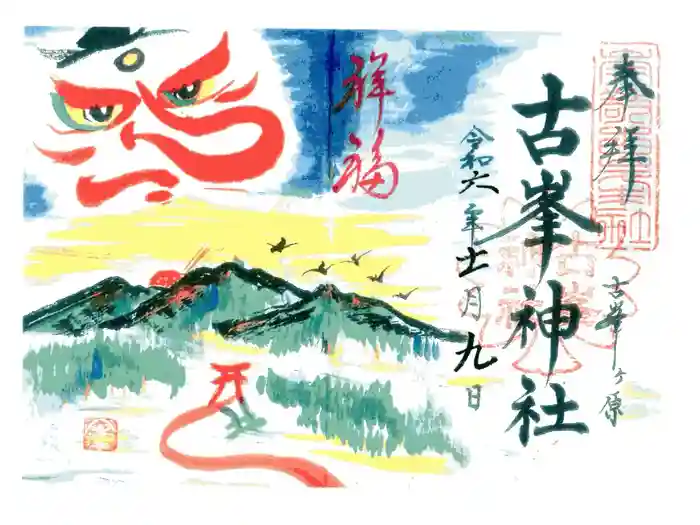 奉拝
古峯ヶ原
古峯神社
令和六年十一月九日
祥福